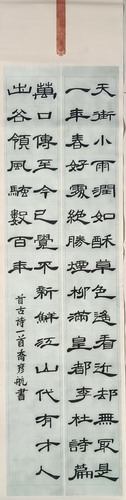 天街小雨潤如酥草色遙看近却無最是
一年春好處絕勝煙柳滿皇都李杜詩篇
萬口傳至今已覺不新鮮江山代有才人
出各領風騷數百年
古詩一首喬彥航書